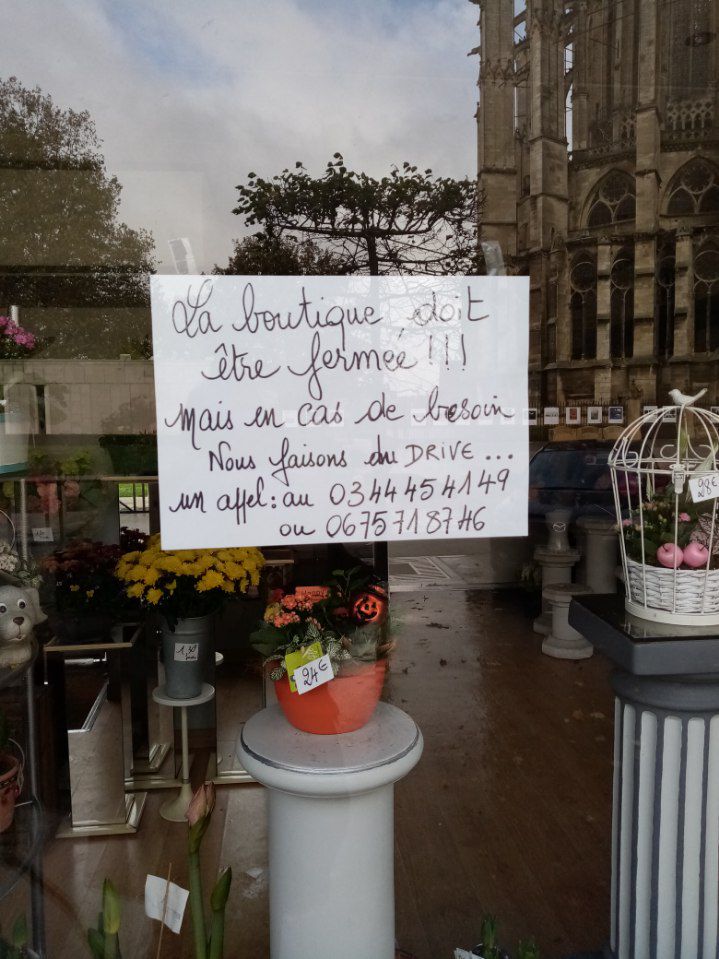 La boutique doit
être fermée !!!
mais en cas de besoin
Nous faisons du DRIVE ...
un appel : au 0344454149
ou 0675718746
28€
1,50
24€